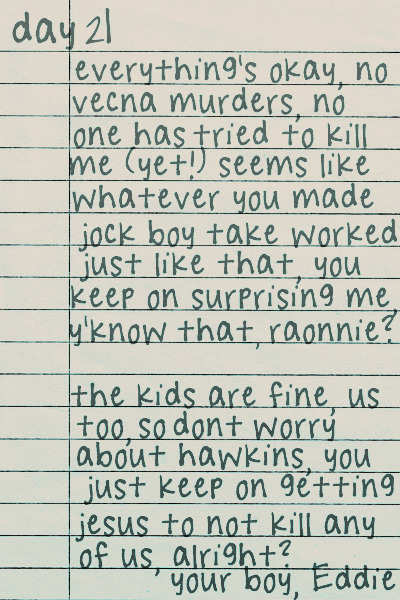 day 21
everything's okay, no
vecna murders, no
one has tried to kill
me (yet!) seems like
whatever you made
jock boy take worked
just like that, you
keep on surprising me,
y'know that, raonnie?
the kids are fine, us
too, so dont worry
about hawkins, you
just keep on getting
jesus to not kill any
of us, alright?
your boy, Eddie